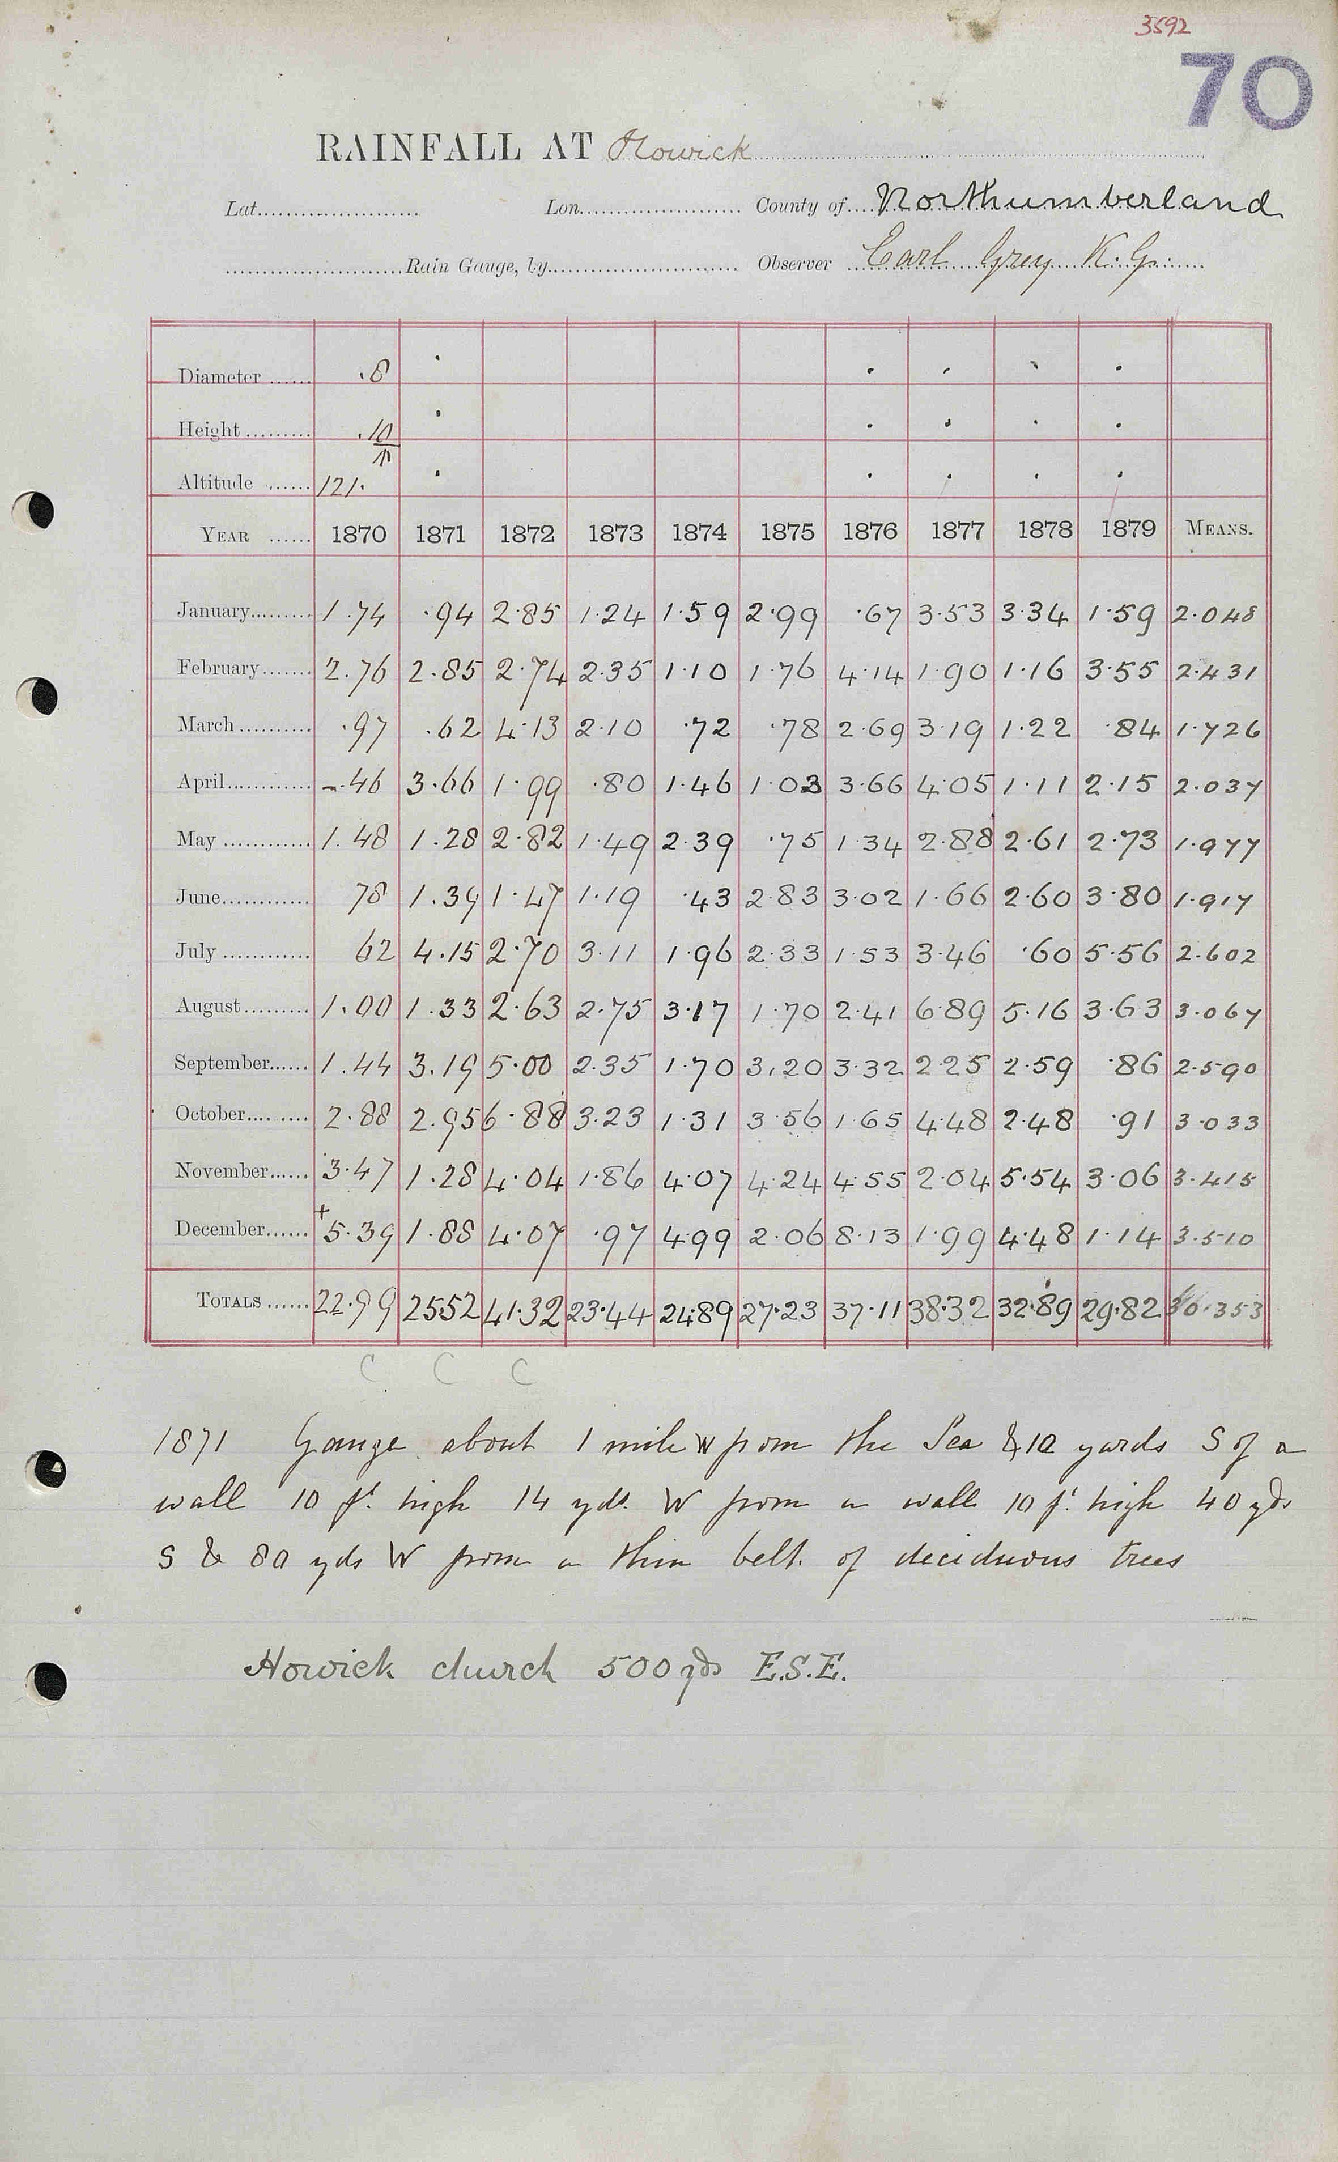 3592
70
RAINFALL AT Howick
Lat. Lon. County of Northumberland
Rain Gauge, by Observer Earl Grey K.G.
Diameter .8
Height .10
Altitude 121.
YEAR 1870 1871 1872 1873 1874 1875 1876 1877 1878 1879 MEANS.
January 1.74 .94 2.85 1.24 1.59 2.99 .67 3.53 3.34 1.59 2.048
February 2.76 2.85 2.74 2.35 1.10 1.76 4.14 1.90 1.16 3.55 2.431
March .97 .62 4.13 2.10 .72 .78 2.69 3.19 1.22 .84 1.726
April .46 3.66 1.99 .80 1.46 1.03 3.66 4.05 1.11 2.15 2.037
May 1.48 1.28 2.82 1.49 2.39 .75 1.34 2.88 2.61 2.73 1.977
June 78 1.39 1.47 1.19 .43 2.83 3.02 1.66 2.60 3.80 1.917
July 62 4.15 2.70 3.11 1.96 2.33 1.53 3.46 .60 5.56 2.602
August 1.00 1.33 2.63 2.75 3.17 1.70 2.41 6.89 5.16 3.63 3.067
September 1.44 3.19 5.00 2.35 1.70 3.20 3.32 2.25 2.59 .86 2.590
October 2.88 2.95 6.88 3.23 1.31 3.56 1.65 4.48 2.48 .91 3.033
November 3.47 1.28 4.04 1.86 4.07 4.24 4.55 2.04 5.54 3.06 3.415
December +5.39 1.88 4.07 .97 4.99 2.06 8.13 1.99 4.48 1.14 3.510
TOTALS 22.99 25.52 41.32 23.44 24.89 27.23 37.11 38.32 32.89 29.82 30.353
C C C
1871 Gauge about 1 mile W from the Sea & 10 yards S of a
wall 10 ft. high 14 yds. W from a wall 10 ft. high 40 yds
S & 80 yds W from a thin belt. of deciduous trees
Howick church 500 yds E.S.E.